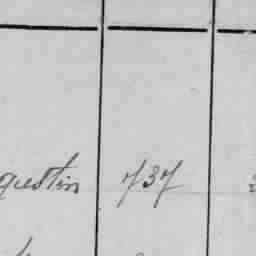 questin 737